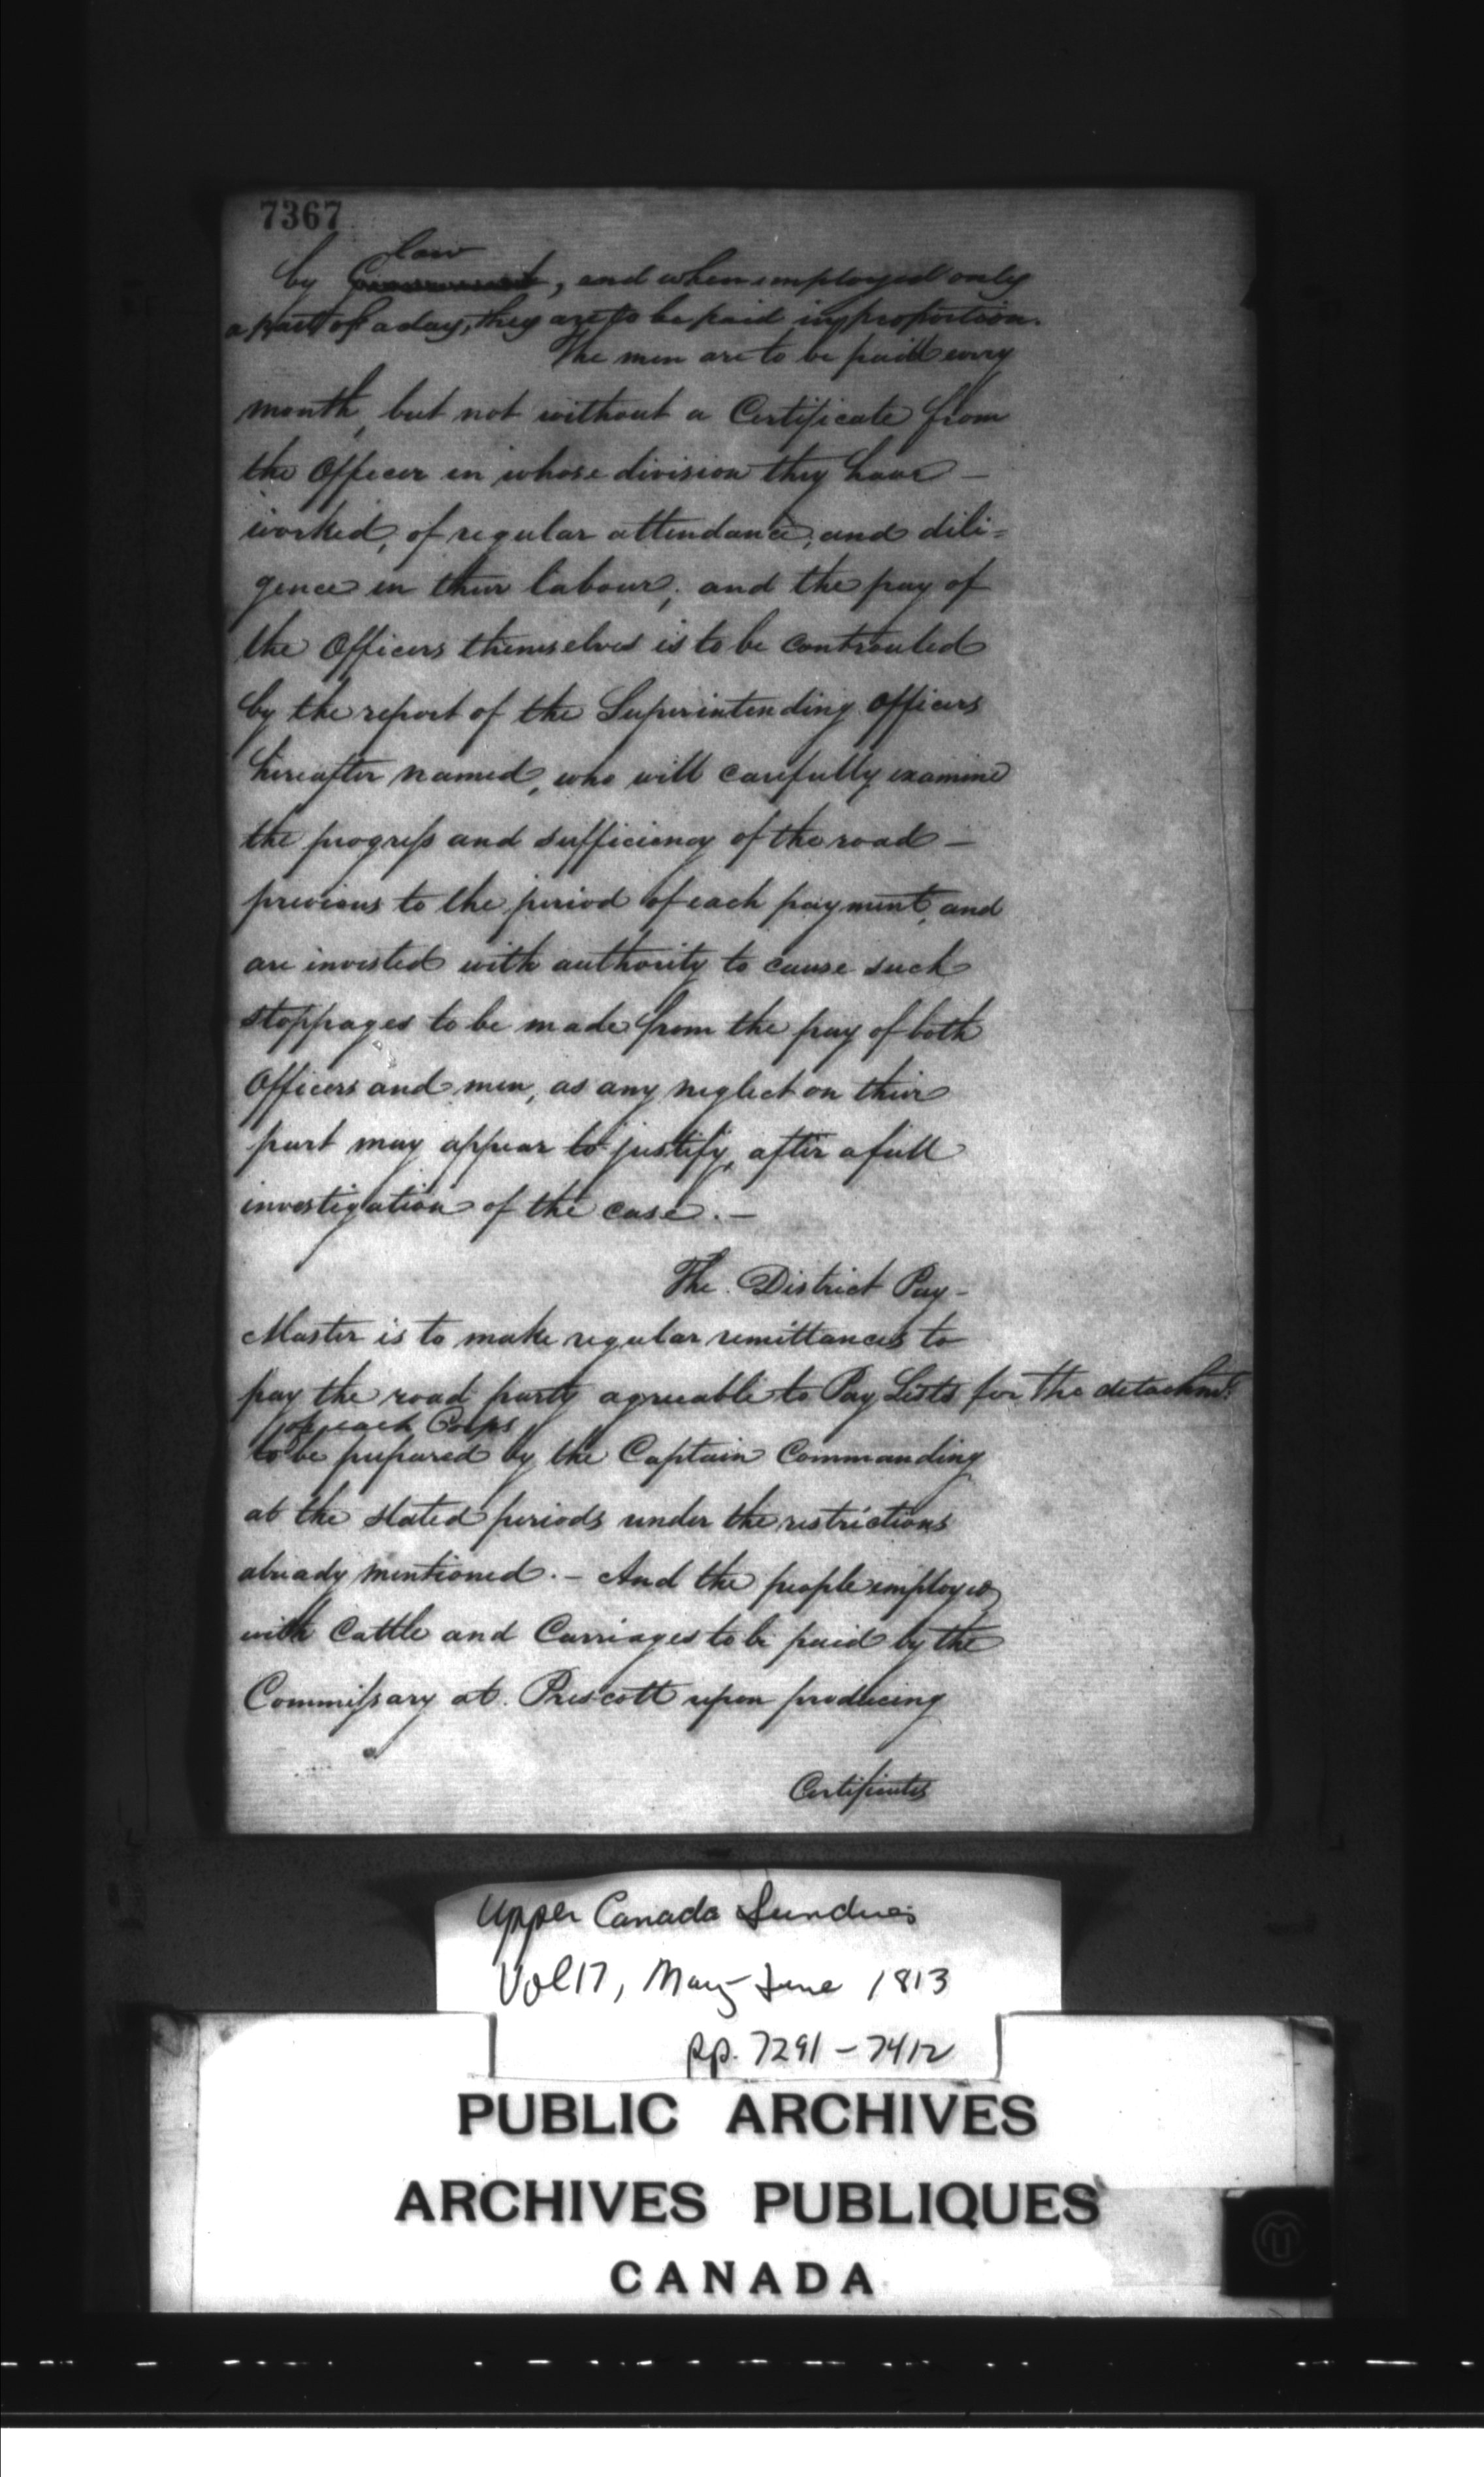 7367
law
by Government, and when employed only
a part of a day, they are to be paid in proportion.
The men are to be paid every
month, but not without a Certificate from
the Officer in whose division they have –
worked, of regular attendance, and dili=
gence in their labour; and the pay of
the Officers themselves is to be controuled
by the report of the Superintending Officers
hereafter named, who will carefully examine
the progress and sufficiency of the road –
previous to the period of each payment, and
are invested with authority to cause such
stoppages to be made from the pay of both
Officers and men, as any neglect on their
part may appear to justify, after a full
investigation of the case. –
The District Pay-
Master is to make regular remittances to
pay the road party agreeable to Pay Lists for the detachmt.
of each Corps
to be prepared by the Captain Commanding
at the stated periods under the restrictions
already mentioned. – And the people employed
with Cattle and Carriages to be paid by the
Commissary at Prescott upon producing
Certificates
Upper Canada Sundries
Vol 17, May-June 1813
pp. 7291 – 7412
PUBLIC ARCHIVES
ARCHIVES PUBLIQUES
CANADA